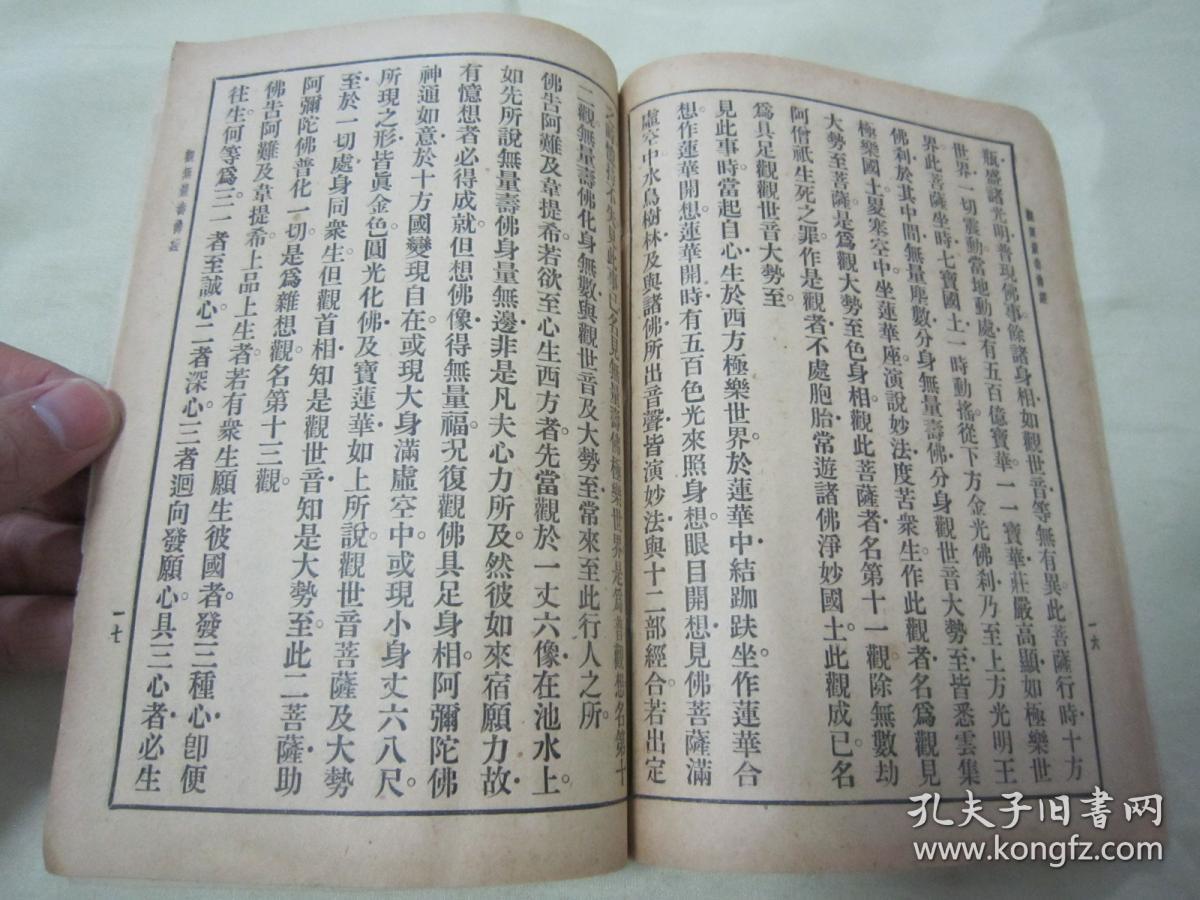 觀無量壽佛經
一六
瓶盛諸光明普現佛事餘諸身相如觀世音等無有異。此菩薩行時・十方
世界一切震動當地動處有五百億寶華一一寶華莊嚴高顯如極樂世
界此菩薩坐時七寶國土一時動搖從下方金光佛刹乃至上方光明王
佛刹於其中間無量塵數分身無量壽佛分身觀世音大勢至皆悉雲集
極樂國土畟塞空中坐蓮華座演說妙法度苦衆生作此觀者名爲觀見
大勢至菩薩是爲觀大勢至色身相觀此菩薩者名第十一觀除無數劫
阿僧祇生死之罪作是觀者不處胞胎常遊諸佛淨妙國土此觀成已名
爲具足觀觀世音大勢至。
見此事時當起自心生於西方極樂世界於蓮華中結跏趺坐作蓮華合
想作蓮華開想蓮華開時有五百色光來照身想眼目開想見佛菩薩滿
虛空中水鳥樹林及與諸佛所出音聲皆演妙法與十二部經合若出定
之時憶持不失見此事已名見無量壽佛極樂世界是爲普觀想名第十
二觀無量壽佛化身無數與觀世音及大勢至常來至此行人之所。
佛告阿難及韋提希若欲至心生西方者先當觀於一丈六像在池水上。
如先所說無量壽佛身量無邊非是凡夫心力所及。然彼如來宿願力故・
有憶想者必得成就但想佛像得無量福况復觀佛具足身相。阿彌陀佛
神通如意於十方國變現自在或現大身滿虛空中或現小身丈六八尺。
所現之形皆眞金色。圓光化佛及寶蓮華如上所說。觀世音菩薩及大勢
至於一切處身同衆生但觀首相知是觀世音知是大勢至。此二菩薩助
阿彌陀佛普化一切是爲雜想觀名第十三觀
佛告阿難及韋提希上品上生者若有衆生願生彼國者發三種心・卽便
往生。何等爲三一者至誠心二者深心三者迴向發願心。具三心者必生
觀無量壽佛經
一七
孔夫子旧书网
www.kongfz.com